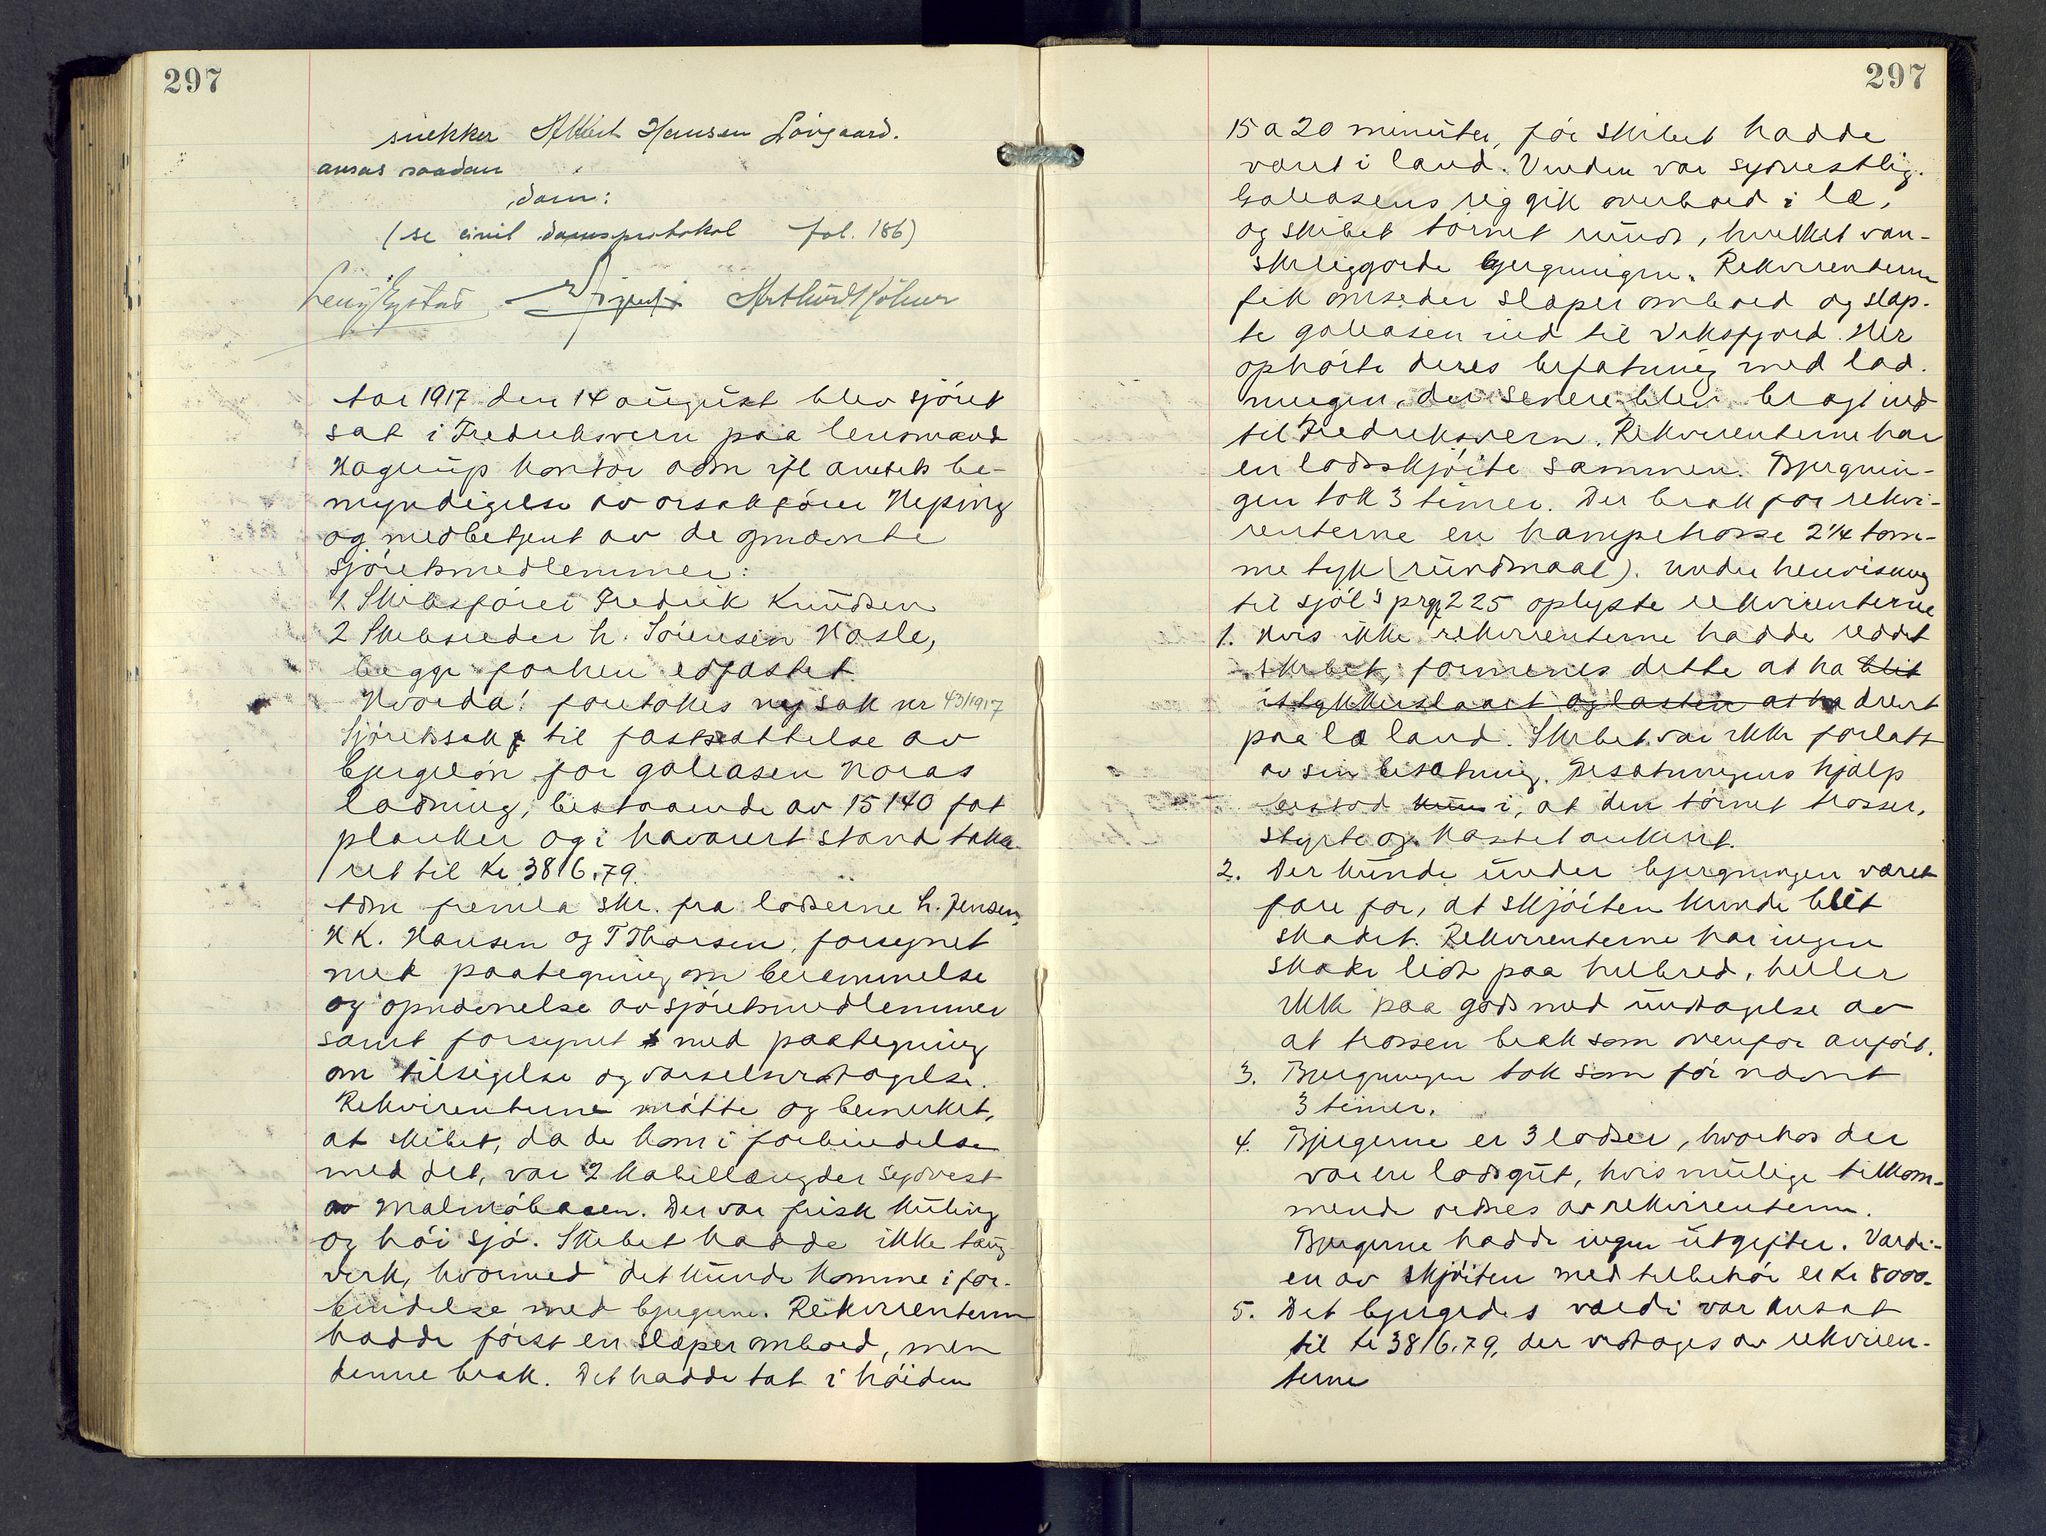 297
snekker Albert Hansen Lövgaard.
ansås saadan
dom:
(se civil domsprotokol fol. 186)
Arthur Köhner
Aar 1917 den 14 august blev sjöret
sat i Fredriksvern paa lensmand
Hagerups kontor adm ifl amtets be-
myndigelse av orsakförer Heping
og medbetjent av de opnævnte
sjöretsmedlemmer:
1. Skibsförer Fredrik Knudsen
2 Skibsreder h. Sörensen Nasle,
begge forhen edfæstet.
Hvorda! foretokes ny sak nr 43/1917
Sjöretssak til fastsættelse av
bjergelön for galeasen Noras
ladning, bestaaende av 15140 fot
planker og i havarert stand takse-
ret til kr 3816.79.
Adm fremla skr. fra lodserne h. Jensen,
H K. Hansen og T Thorsen, forsynet
med paategning om berammelse
og opnævnelse av sjöretsmedlemmer
samt forsynet med paategning
om tilsigelse og varselsvedtagelse.
Rekvirenterne mötte og bemerket,
at skibet, da de kom i forbindelse
med det, var 2 kabellængder sydvest
av Malmöbaaen. Der var frisk kuling
og höi sjö. Skibet hadde ikke taug-
verk, hvormed det kunde komme i for-
bindelse med bjergerne. Rekvirenterne
hadde först en slæper ombord, men
denne brak. Det hadde tat i höiden
297
15 a 20 minuter, för skibet hadde
været i land. Vinden var sydvestlig.
Galeasens rig gik overbord i læ,
og skibet törnet rundt, hvilket van-
skeliggjorde bjergningen. Rekvirenterne
fik omsider slæper ombord og slæp-
te galeasen ind til Viksfjord. Her
ophörte deres befatning med lad-
ningen, der senere blev bragt ind
til Fredriksvern. Rekvirenterne har
en lodsskjöite sammen. Bjergnin-
gen tok 3 timer. Der brak for rekvi-
renterne en hampetrosse 2 1/4 tom-
me tyk (rundmaal). Under henvisning
til sjöl's prgf 225 oplyste rekvirenterne
1. Hvis ikke rekvirenterne hadde reddet
skibet, formenes dette at ha blit
istykkerslaaet og lasten at ha drevt
paa læ land. Skibet var ikke forlatt
av sin besætning. Besætningens hjælp
bestod kun i, at den törnet trosser,
styrte og kastet ankeret.
2. Der kunde under bjergningen været
fare for, at skjöiten kunde blit
skadet. Rekvirenterne har ingen
skade lidt paa helbred, heller
ikke paa gods med undtagelse av
at trossen brak som ovenfor anfört.
3. Bjergningen tok som för nævnt
3 timer.
4. Bjergerne er 3 lodser, hvorhos der
var en lodsgut, hvis mulige tilkom-
mende ordnes av rekvirenterne.
Bjergerne hadde ingen utgifter. Værdi-
en av skjöiten med tilbehör er kr 8000.-
5. Det bjergedes værdi var ansat
til kr 3816.79, der vedtages av rekviren-
terne